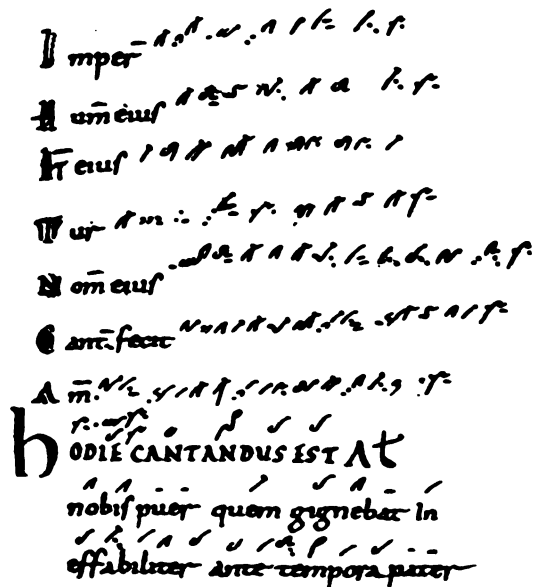 Imper̄
Num̄ eius
Et eius
Tur
Nom̄ eius
Cant̄. fecit
Am̄.
hODIE CANTANDUS EST At
nobis puer quem gignebat In
effabiliter ante tempora pater